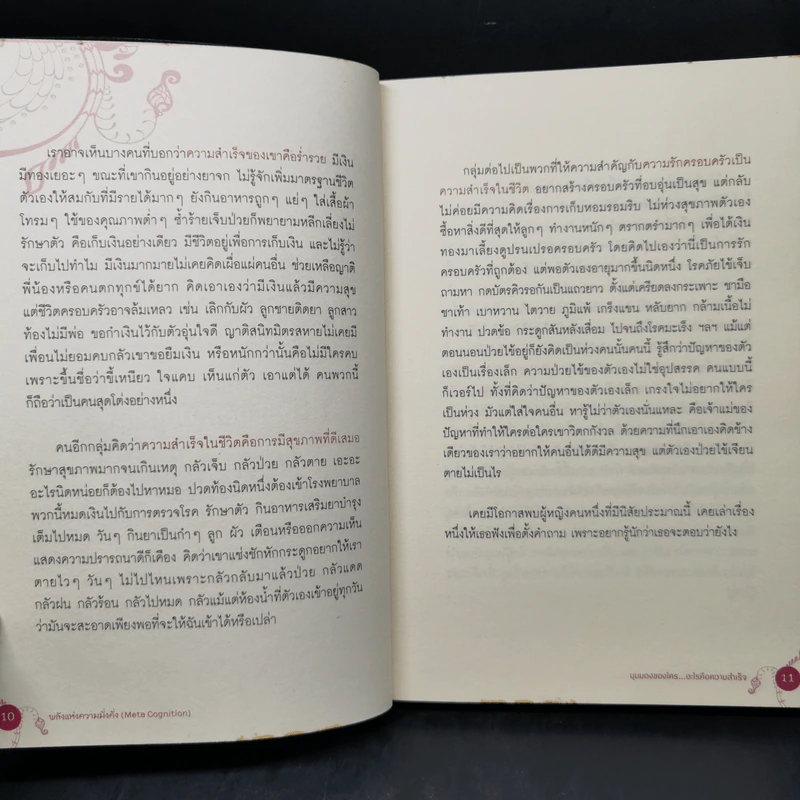 เราอาจเห็นบางคนที่บอกว่าความสำเร็จของเขาคือร่ำรวย มีเงิน
มีทองเยอะๆ ขณะที่เขากินอยู่อย่างยาจก ไม่รู้จักเพิ่มมาตรฐานชีวิต
ตัวเองให้สมกับที่มีรายได้มากๆ ยังกินอาหารถูกๆ แย่ๆ ใส่เสื้อผ้า
โทรมๆ ใช้ของคุณภาพต่ำๆ ซ้ำร้ายเจ็บป่วยก็พยายามหลีกเลี่ยงไม่
รักษาตัว คือเก็บเงินอย่างเดียว มีชีวิตอยู่เพื่อการเก็บเงิน และไม่รู้ว่า
จะเก็บไปทำไม มีเงินมากมายไม่เคยคิดเผื่อแผ่คนอื่น ช่วยเหลือญาติ
พี่น้องหรือคนตกทุกข์ได้ยาก คิดเอาเองว่ามีเงินแล้วมีความสุข
แต่ชีวิตครอบครัวอาจล้มเหลว เช่น เลิกกับผัว ลูกชายติดยา ลูกสาว
ท้องไม่มีพ่อ ขอกำเงินไว้กับตัวอุ่นใจดี ญาติสนิทมิตรสหายไม่เคยมี
เพื่อนไม่ยอมคบกลัวเขาขอยืมเงิน หรือหนักกว่านั้นคือไม่มีใครคบ
เพราะขึ้นชื่อว่าขี้เหนียว ใจแคบ เห็นแก่ตัว เอาแต่ได้ คนพวกนี้
ก็ถือว่าเป็นคนสุดโต่งอย่างหนึ่ง
คนอีกกลุ่มคิดว่าความสำเร็จในชีวิตคือการมีสุขภาพที่ดีเสมอ
รักษาสุขภาพมากจนเกินเหตุ กลัวเจ็บ กลัวป่วย กลัวตาย เอะอะ
อะไรนิดหน่อยก็ต้องไปหาหมอ ปวดท้องนิดหนึ่งต้องเข้าโรงพยาบาล
พวกนี้หมดเงินไปกับการตรวจโรค รักษาตัว กินอาหารเสริมยาบำรุง
เต็มไปหมด วันๆ กินยาเป็นกำๆ ลูก ผัว เตือนหรือออกความเห็น
แสดงความปรารถนาดีก็เคือง คิดว่าเขาแช่งชักหักกระดูกอยากให้เรา
ตายไวๆ วันๆ ไม่ไปไหนเพราะกลัวกลับมาแล้วป่วย กลัวแดด
กลัวฝน กลัวร้อน กลัวไปหมด กลัวแม้แต่ห้องน้ำที่ตัวเองเข้าอยู่ทุกวัน
ว่ามันจะสะอาดเพียงพอที่จะให้ฉันเข้าได้หรือเปล่า
10 พลังแห่งความมั่งคั่ง (Meta Cognition)
กลุ่มต่อไปเป็นพวกที่ให้ความสำคัญกับความรักครอบครัวเป็น
ความสำเร็จในชีวิต อยากสร้างครอบครัวที่อบอุ่นเป็นสุข แต่กลับ
ไม่ค่อยมีความคิดเรื่องการเก็บหอมรอมริบ ไม่ห่วงสุขภาพตัวเอง
ซื้อหาสิ่งดีที่สุดให้ลูกๆ ทำงานหนักๆ ตรากตรำมากๆ เพื่อได้เงิน
ทองมาเลี้ยงดูปรนเปรอครอบครัว โดยคิดไปเองว่านี่เป็นการรัก
ครอบครัวที่ถูกต้อง แต่พอตัวเองอายุมากขึ้นนิดหนึ่ง โรคภัยไข้เจ็บ
ถามหา กดบัตรคิวรอกันเป็นแถวยาว ตั้งแต่เครียดลงกระเพาะ ชามือ
ชาเท้า เบาหวาน ไตวาย ภูมิแพ้ เกร็งแขน หลับยาก กล้ามเนื้อไม่
ทำงาน ปวดข้อ กระดูกสันหลังเสื่อม ไปจนถึงโรคมะเร็ง ฯลฯ แม้แต่
ตอนนอนป่วยไข้อยู่ก็ยังคิดเป็นห่วงคนนั้นคนนี้ รู้สึกว่าปัญหาของตัว
เองเป็นเรื่องเล็ก ความป่วยไข้ของตัวเองไม่ใช่อุปสรรค คนแบบนี้
ก็เวอร์ไป ทั้งที่คิดว่าปัญหาของตัวเองเล็ก เกรงใจไม่อยากให้ใคร
เป็นห่วง มัวแต่ใส่ใจคนอื่น หารู้ไม่ว่าตัวเองนั่นแหละ คือเจ้าแม่ของ
ปัญหาที่ทำให้ใครต่อใครเขาวิตกกังวล ด้วยความที่นึกเอาเองคิดข้าง
เดียวของเราว่าอยากให้คนอื่นได้ดีมีความสุข แต่ตัวเองป่วยไข้เจียน
ตายไม่เป็นไร
เคยมีโอกาสพบผู้หญิงคนหนึ่งที่มีนิสัยประมาณนี้ เคยเล่าเรื่อง
หนึ่งให้เธอฟังเพื่อตั้งคำถาม เพราะอยากรู้นักว่าเธอจะตอบว่ายังไง
มุมมองของใคร...อะไรคือความสำเร็จ 11